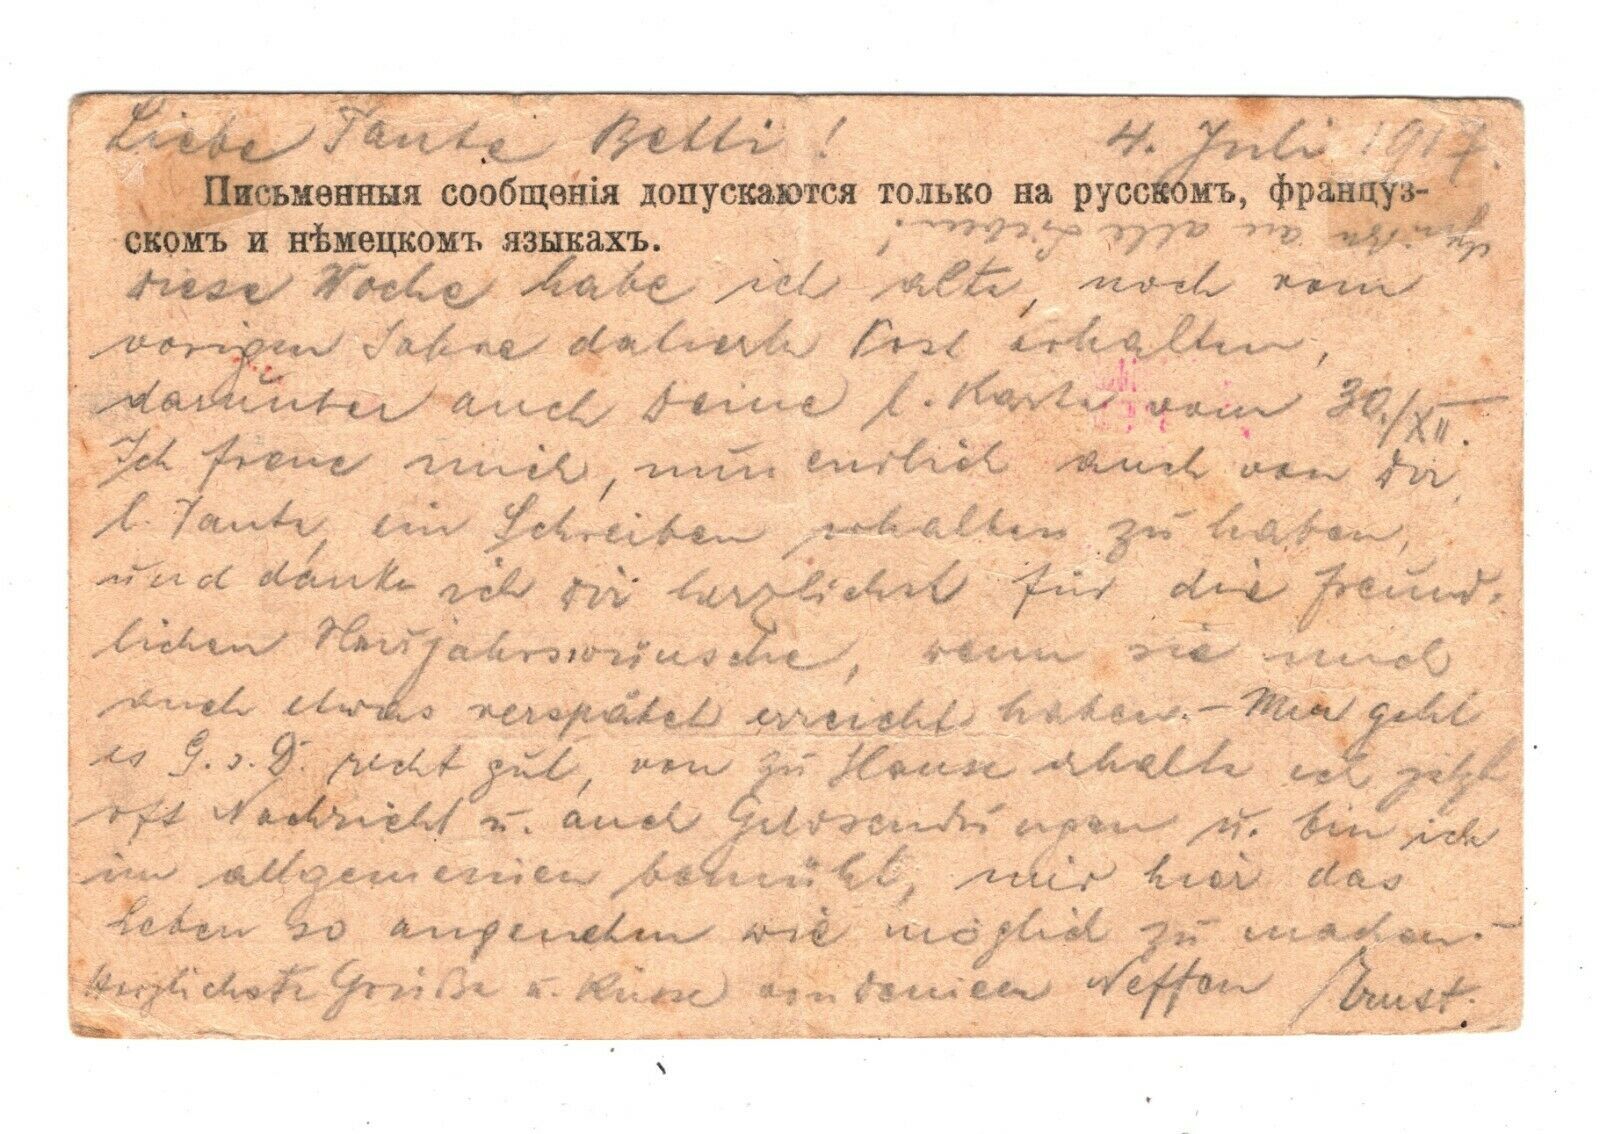 Liebe Tante Betti! 4. Juli 1917.
Письменныя сообщенія допускаются только на русскомъ, француз-
скомъ и нѣмецкомъ языкахъ.
Grüße an alle Lieben!
Diese Woche habe ich alte, noch vom
vorigen Jahre datierte Post erhalten,
darunter auch Deine l. Karte vom 30./XII.
Ich freue mich, nun endlich auch von Dir,
l. Tante, ein Schreiben erhalten zu haben,
und danke ich Dir herzlichst für die freund-
lichen Neujahrswünsche, wenn sie mich
auch etwas verspätet erreicht haben. - Mir geht
es G. s. D. recht gut, von zu Hause erhalte ich jetzt
oft Nachricht u. auch Geldsendungen u. bin ich
im allgemeinen bemüht, mir hier das
Leben so angenehm wie möglich zu machen. -
Herzlichste Grüße u. Küsse von Deinem Neffen Ernst.